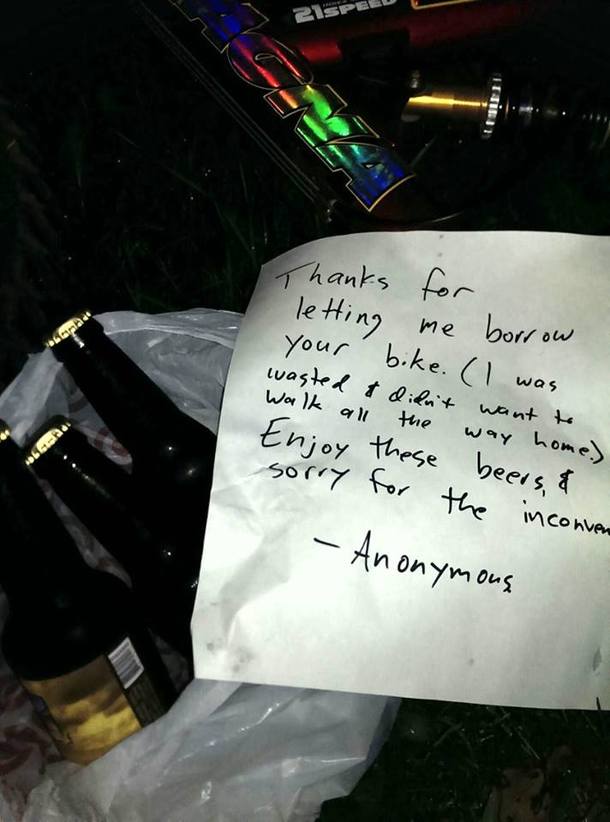 21SPEED
Thanks for
letting me borrow
your bike. (I was
wasted & didn't want to
walk all the way home.)
Enjoy these beers, &
sorry for the
- Anonymous